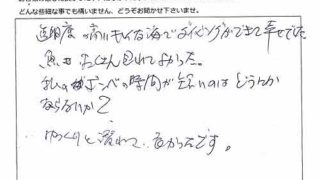 どんな些細な事でも構いません、どうぞお聞かせ下さいませ。
透明度の高いキレイな海でダイビングができて幸せでした。
魚もたくさん見れてよかった。
私のボンベの時間が短いのはどうにか
ならないか?
ゆっくりと潜れて、良かったです。